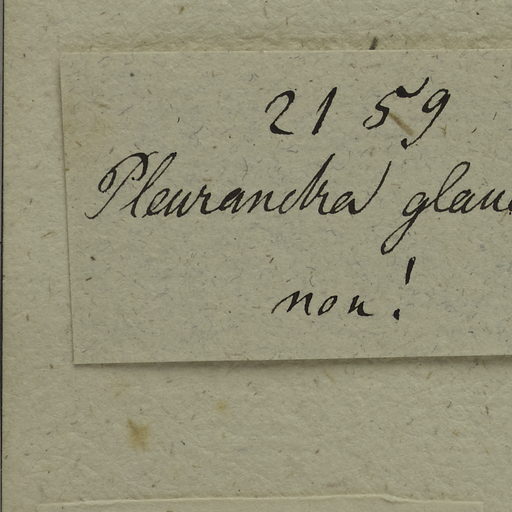 2159
Pleurandra glau
non!